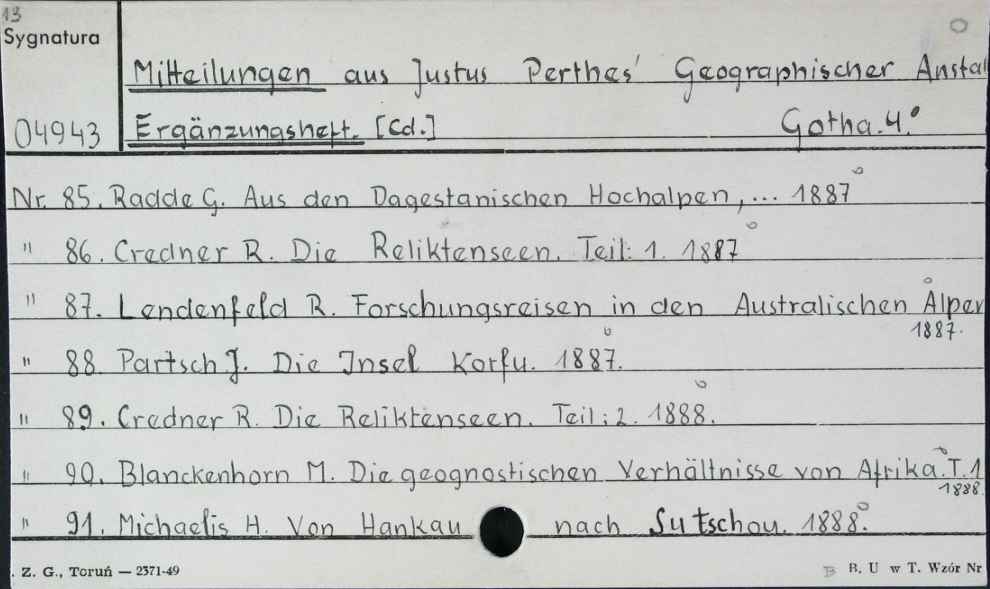 13
Sygnatura
Mitteilungen aus Justus Perthes' Geographischer Anstal
04943 Ergänzungsheft. [Cd.] Gotha. 4.°
Nr. 85. Radde G. Aus den Dagestanischen Hochalpen, ... 1887
" 86. Credner R. Die Reliktenseen. Teil: 1. 1887
" 87. Lendenfeld R. Forschungsreisen in den Australischen Alpen
1887.
" 88. Partsch J. Die Insel Korfu. 1887.
" 89. Credner R. Die Reliktenseen. Teil: 2. 1888.
" 90. Blanckenhorn M. Die geognostischen Verhältnisse von Afrika. T. 1
1888
" 91. Michaelis H. Von Hankau nach Sutschou. 1888.
. Z. G., Toruń — 2371-49 B B. U w T. Wzór Nr